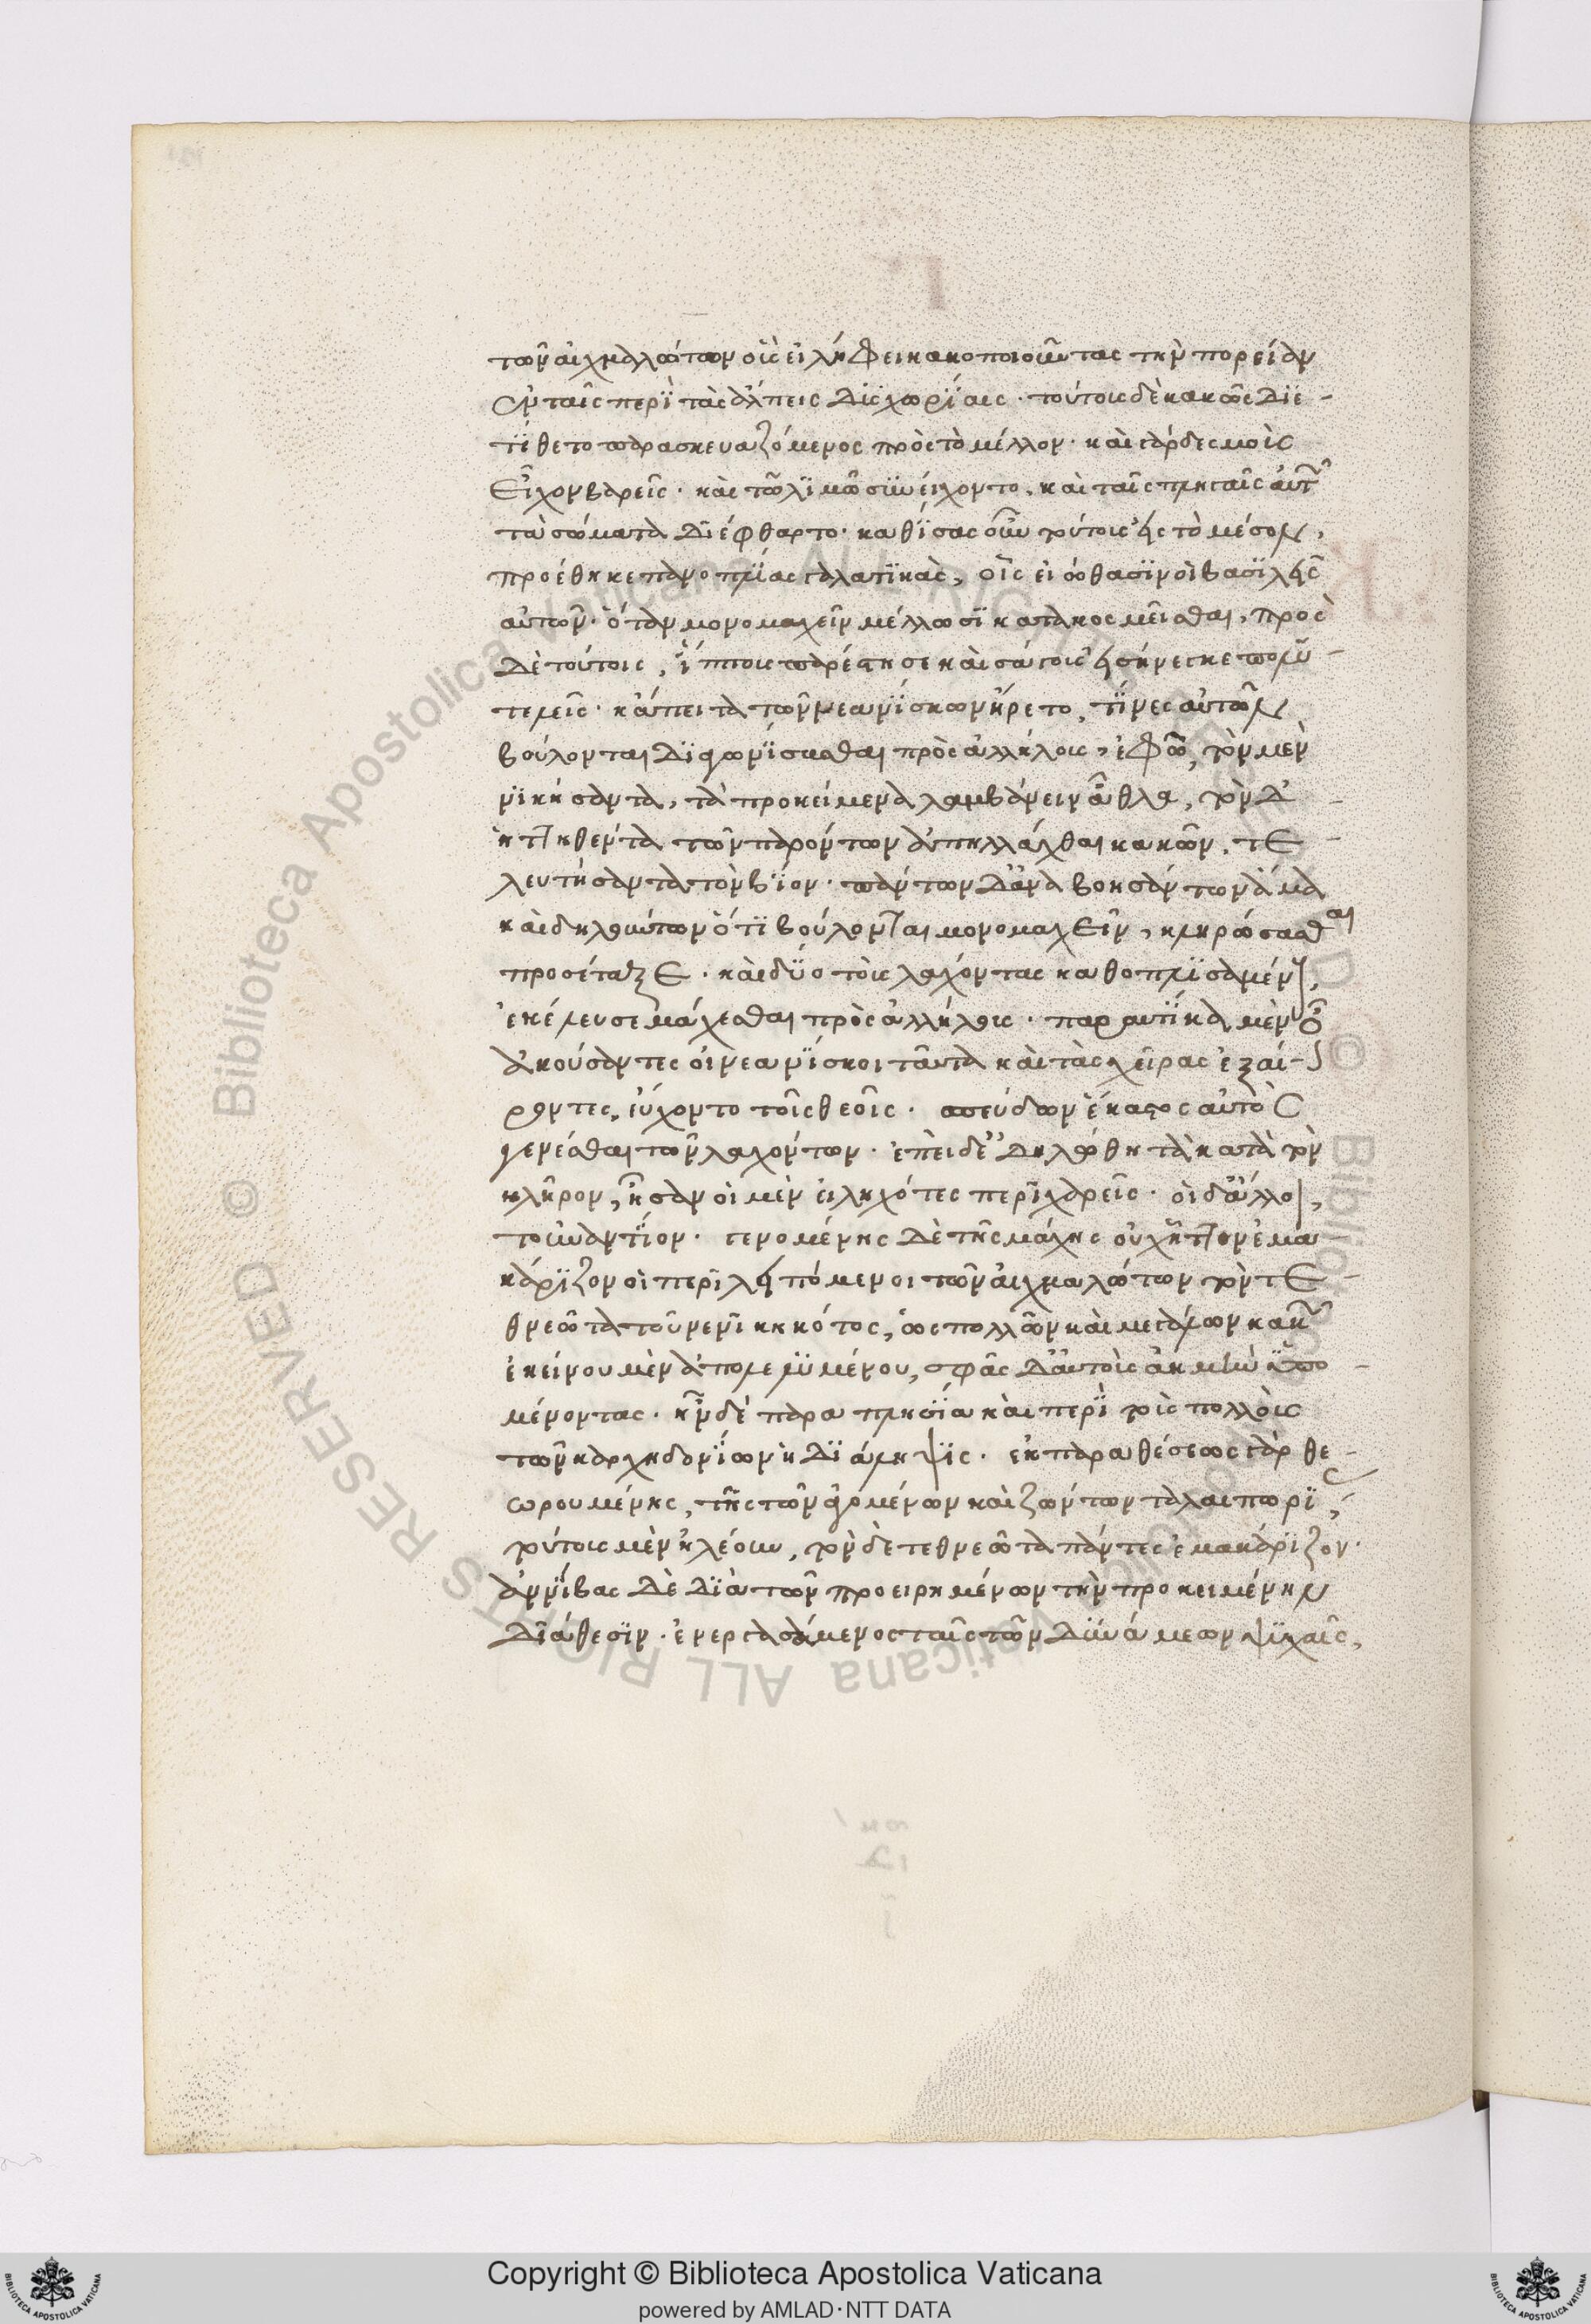 τῶν αἰχμαλώτων οὓς εἰλήφει κακοποιοῦντας τὴν πορείαν
ἐν ταῖς περὶ τὰς ἄλπεις δυσχωρίαις· τούτους δὲ κακῶς διε-
τίθετο παρασκευαζόμενος πρὸς τὸ μέλλον· καὶ γὰρ δεσμοὺς
εἶχον βαρεῖς· καὶ τῶ λιμῶ συνείχοντο· καὶ ταῖς πληγαῖς αὐτῶν
τὰ σώματα διέφθαρτο· καθίσας οὖν τούτους εἰς τὸ μέσον,
προέθηκε πανοπλίας γαλατικάς, οἷς εἰώθασιν οἱ βασιλεῖς
αὐτῶν· ὅταν μονομαχεῖν μέλλωσι κατακοσμεῖσθαι, πρὸς
δὲ τούτοις, ἵππους παρέστησε καὶ σάγους εἰσήνεγκε πολυ-
τελεῖς· κἄπειτα τῶν νεανίσκων ἤρετο, τίνες αὐτῶν
βούλονται διαγωνίσασθαι πρὸς ἀλλήλους, ἐφ' ᾧ, τὸν μὲν
νικήσαντα, τὰ προκείμενα λαμβάνειν ἆθλα, τὸν δ'
ἡττηθέντα τῶν παρόντων ἀπηλλάχθαι κακῶν, τε-
λευτήσαντα τὸν βίον· πάντων δ' ἀναβοησάντων ἅμα
καὶ δηλούντων ὅτι βούλονται μονομαχεῖν, κληρώσασθαι
προσέταξε· καὶ δύο τοὺς λαχόντας καθοπλισαμένους,
ἐκέλευσε μάχεσθαι πρὸς ἀλλήλους· παραυτίκα μὲν οὖν
ἀκούσαντες οἱ νεανίσκοι ταῦτα καὶ τὰς χεῖρας ἐξαί-
ροντες, εὔχοντο τοῖς θεοῖς· σπεύδων ἕκαστος αὐτὸς
γενέσθαι τῶν λαχόντων· ἐπεὶ δ' ἐδηλώθη τὰ κατὰ τὸν
κλῆρον, ἦσαν οἱ μὲν εἰληχότες περιχαρεῖς· οἱ δ' ἄλλοι,
τοὐναντίον· γενομένης δὲ τῆς μάχης οὐχ ἧττον ἐμα
κάριζον οἱ περιλειπόμενοι τῶν αἰχμαλώτων τὸν τε-
θνεῶτα τοῦ νενικηκότος, ὡς πολλῶν καὶ μεγάλων κακῶν
ἐκείνου μὲν ἀπολελυμένου, σφᾶς δ' αὐτοὺς ἀκμὴν ὑπο-
μένοντας· ἦν δὲ παραπλησία καὶ περὶ τοὺς πολλοὺς
τῶν καρχηδονίων ἡ διάληψις· ἐκ παραθέσεως γὰρ θε-
ωρουμένης, τῆς τῶν ἀγομένων καὶ ζώντων ταλαιπωρίας,
τούτους μὲν ἠλέουν, τὸν δὲ τεθνεῶτα πάντες ἐμακάριζον·
ἀννίβας δὲ διὰ τῶν προειρημένων τὴν προκειμένην
διάθεσιν· ἐνεργασάμενος ταῖς τῶν δυνάμεων ψυχαῖς,
Copyright © Biblioteca Apostolica Vaticana
powered by AMLAD·NTT DATA